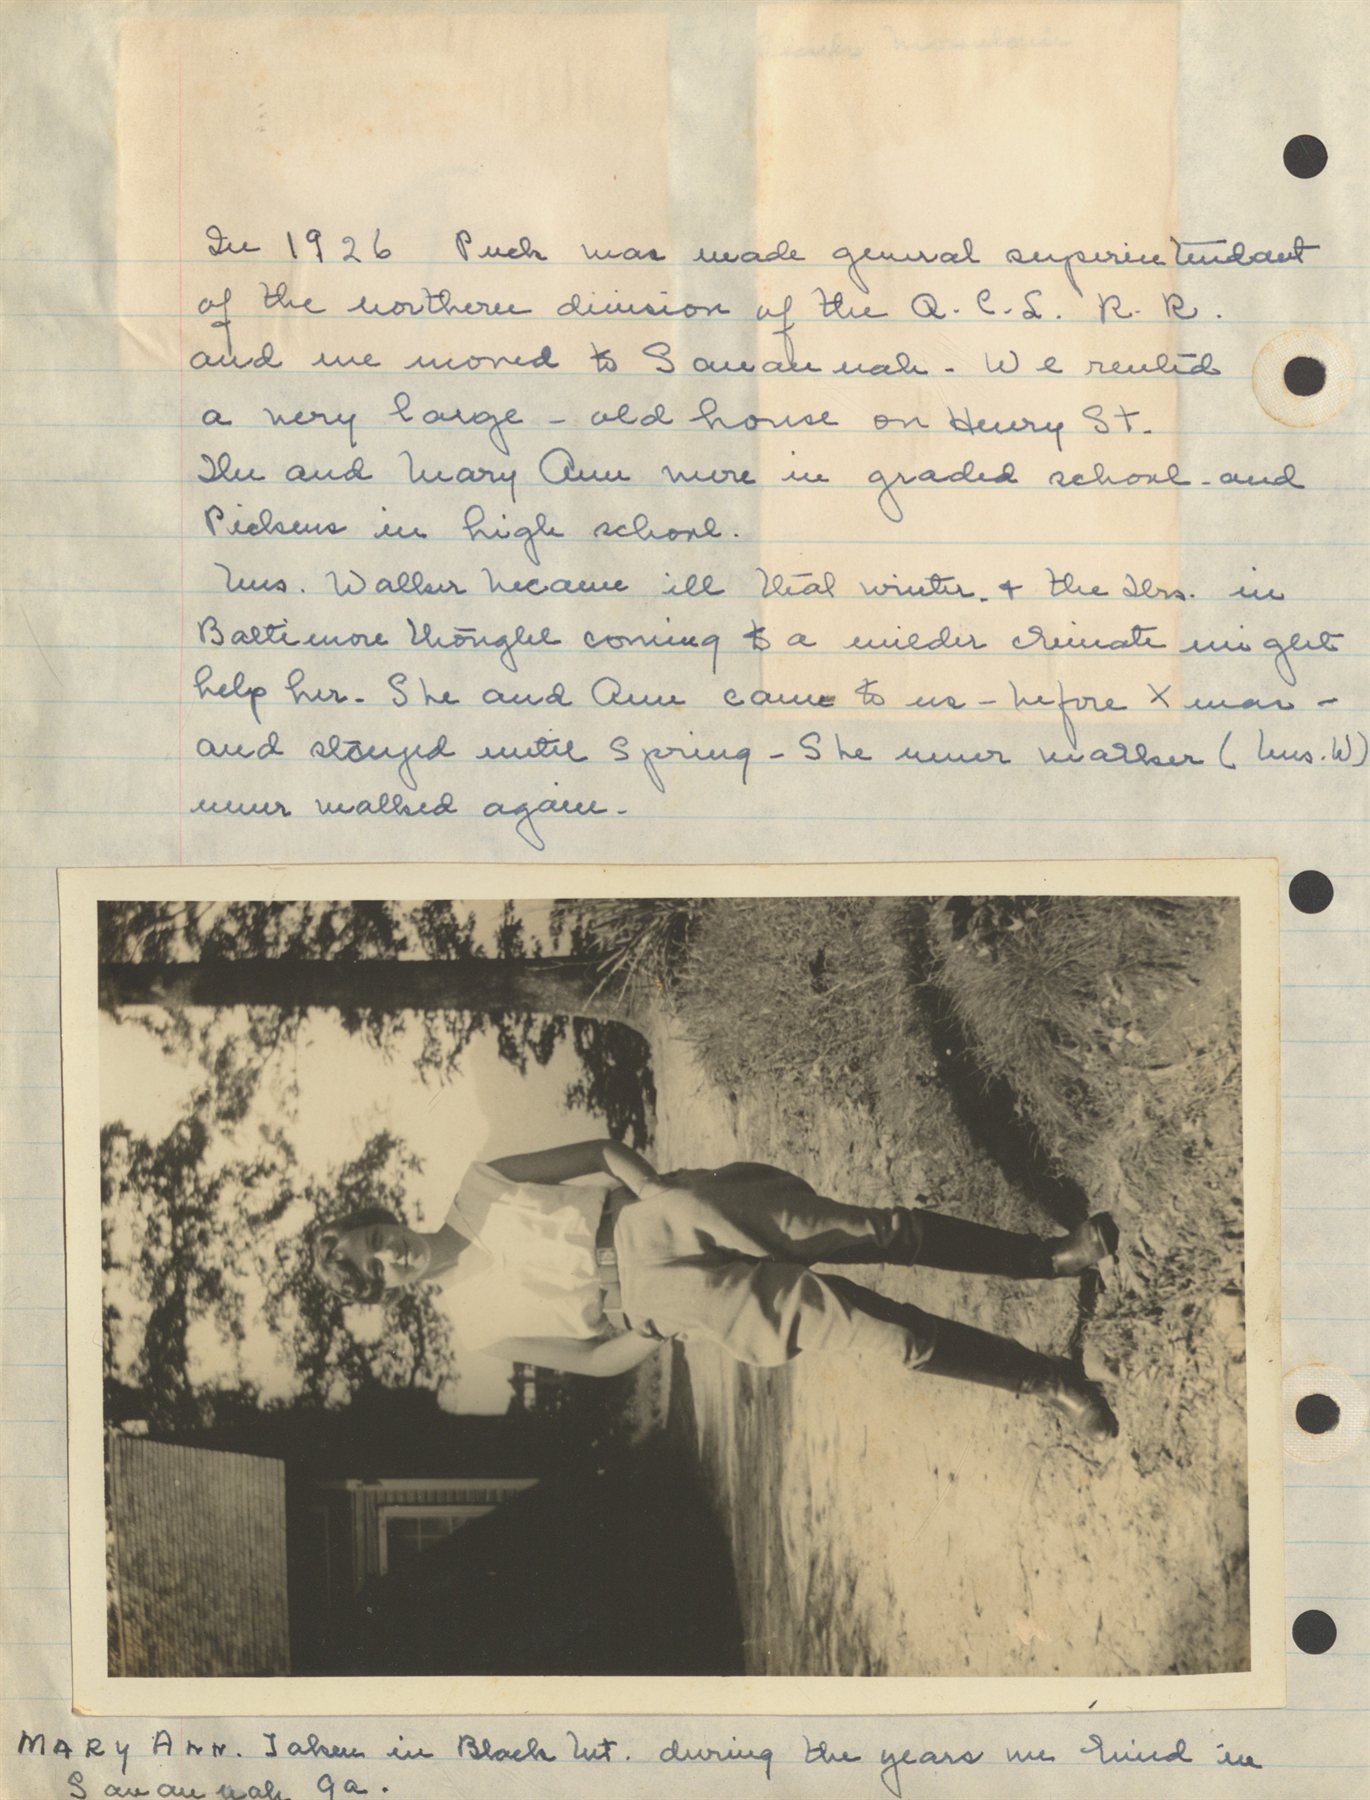 In 1926 Puck was made general superintendant
of the northern division of the A. C. L. R. R.
and we moved to Savannah - We rented
a very large - old house on Henry St.
and Mary Ann were in graded school - and
Pickens in high school.
Mrs. Walker became ill that winter. + the Drs. in
Baltimore thought coming to a milder climate might
help her - She and Ann came to us - before Xmas -
and stayed until Spring - She never walker ( Mrs. W)
never walked again -
MARY ANN. Taken in Black Mt. during the years we lived in
Savannah Ga.